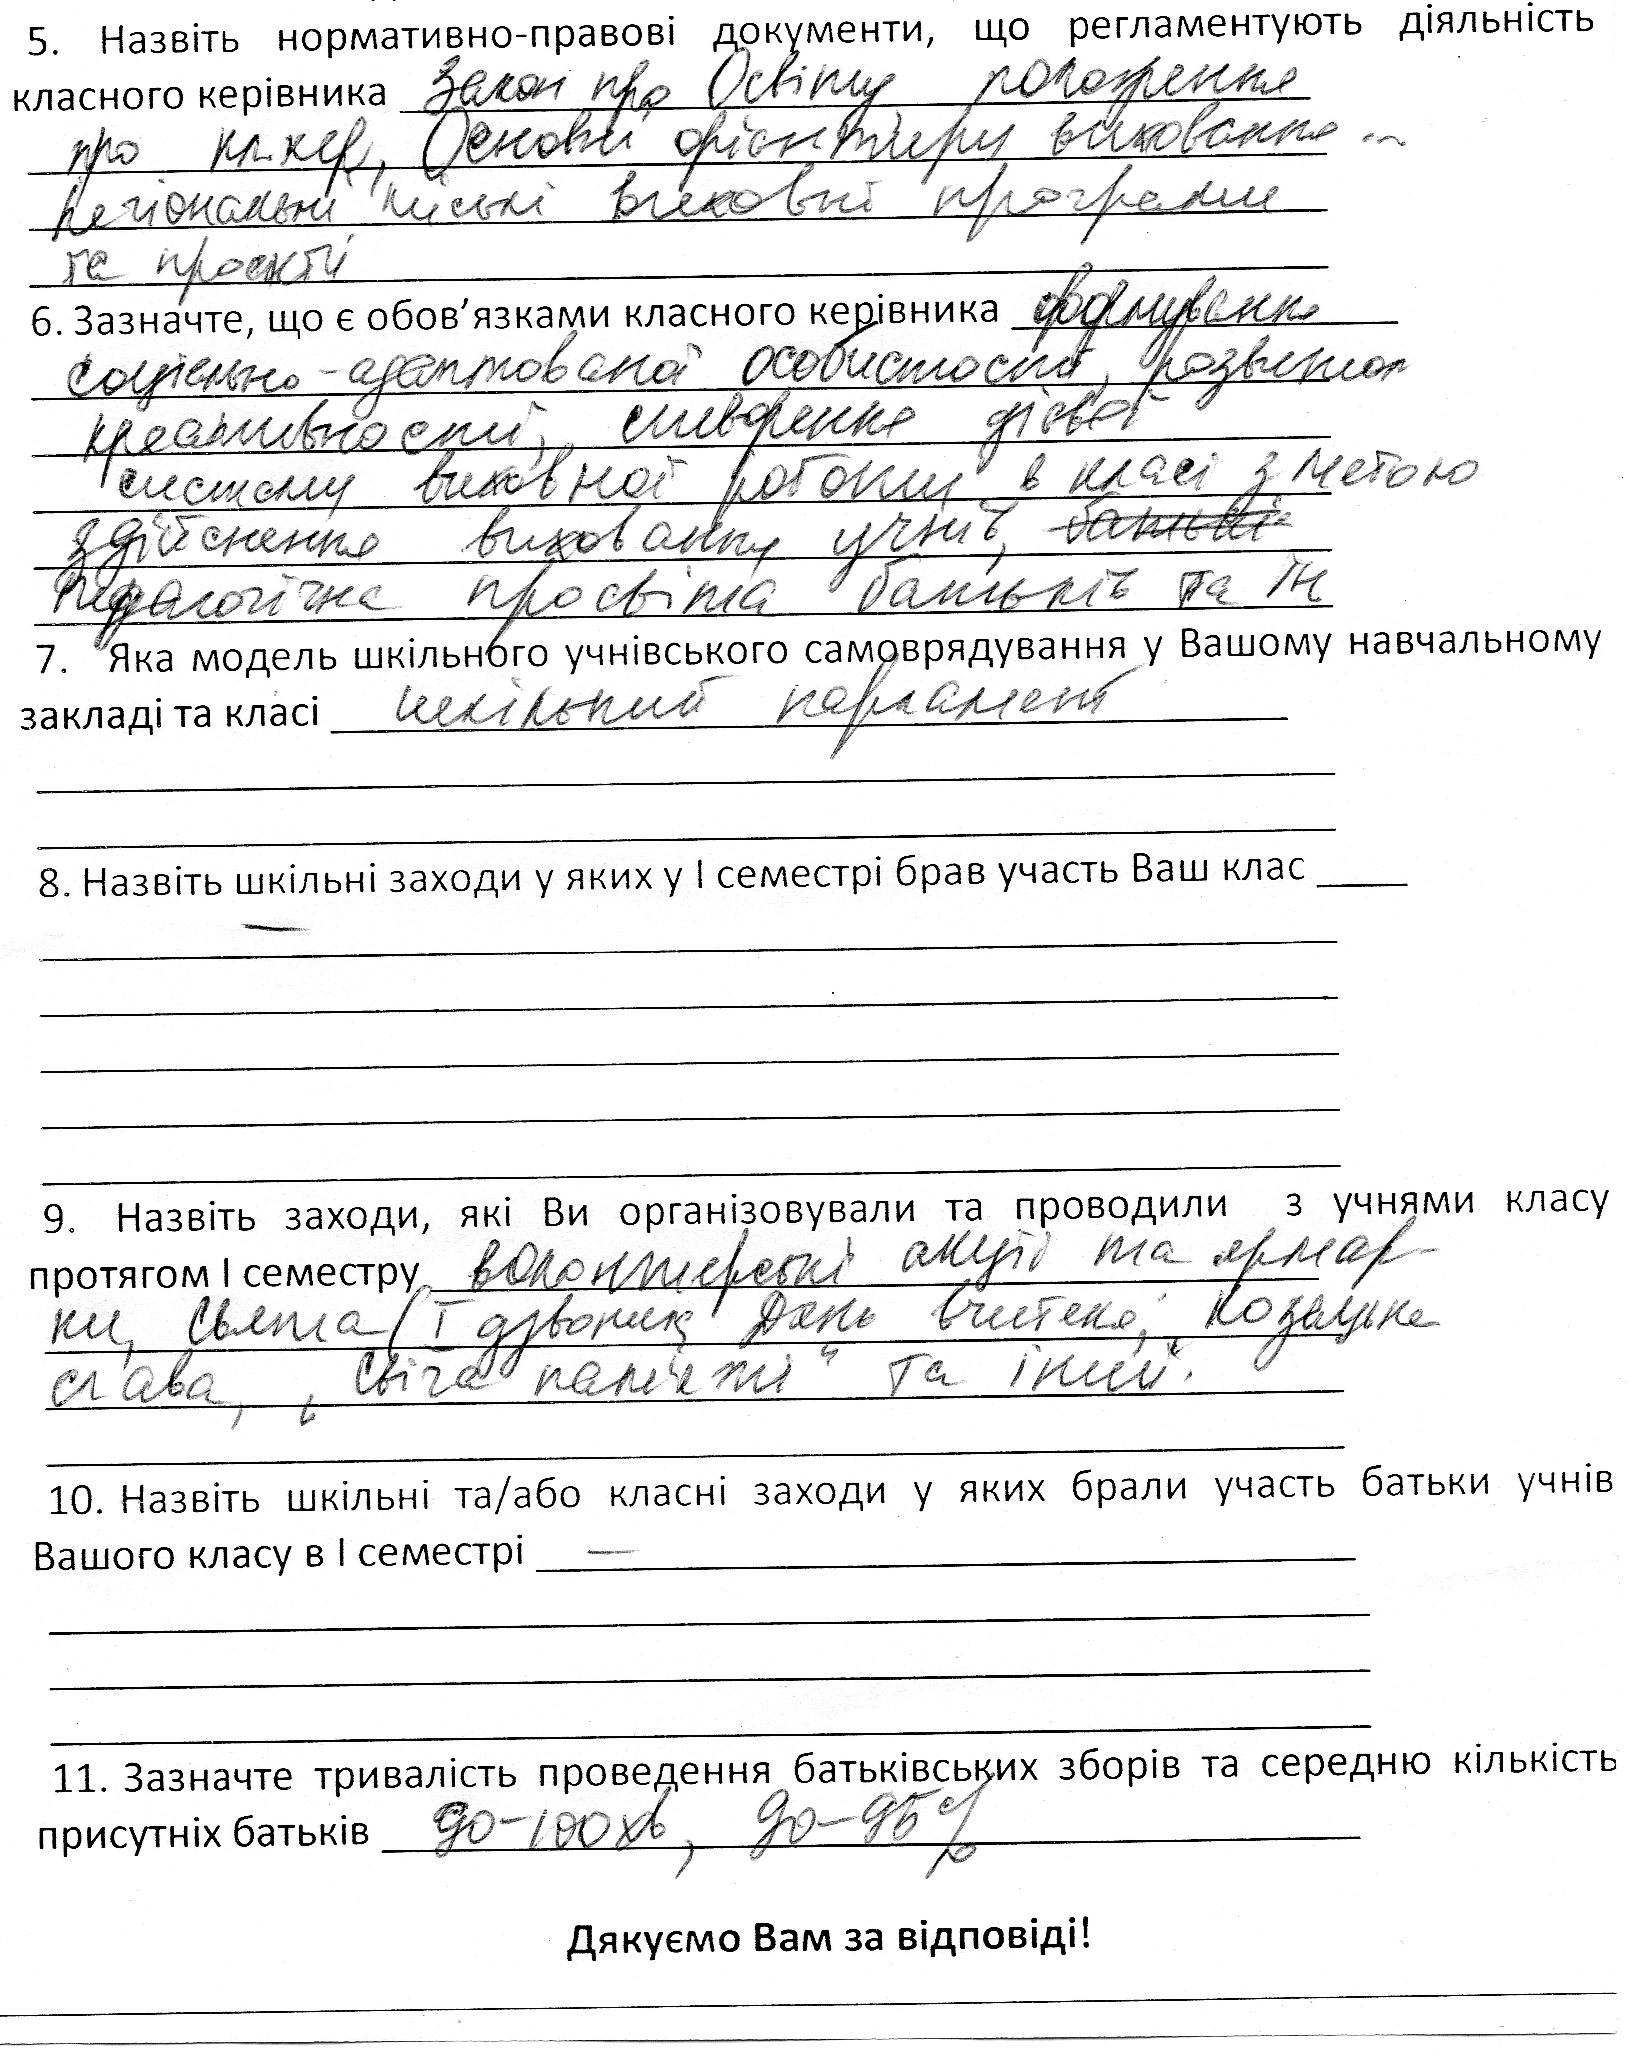 5. Назвіть нормативно-правові документи, що регламентують діяльність
класного керівника Закон про Освіту положення
про кл.кер, Основні орієнтири виховання ...
Регіональні міські виховні програми
та проєкти
6. Зазначте, що є обов’язками класного керівника формування
соціально-адаптованої особистості, розвиток
креативності, створення дієвої
систему виховної роботи в класі з метою
здійснення виховання учнів,
педагогічна просвіта батьків та ін
7. Яка модель шкільного учнівського самоврядування у Вашому навчальному
закладі та класі шкільний парламент
8. Назвіть шкільні заходи у яких у І семестрі брав участь Ваш клас
—
9. Назвіть заходи, які Ви організовували та проводили з учнями класу
протягом І семестру волонтерські акції та ярмар-
ки, свята (І дзвоник, День вчителя, "Козацька
слава, „Свіча пам'яті" та інші.
10. Назвіть шкільні та/або класні заходи у яких брали участь батьки учнів
Вашого класу в І семестрі —
11. Зазначте тривалість проведення батьківських зборів та середню кількість
присутніх батьків 90-100хв, 90-95%
Дякуємо Вам за відповіді!